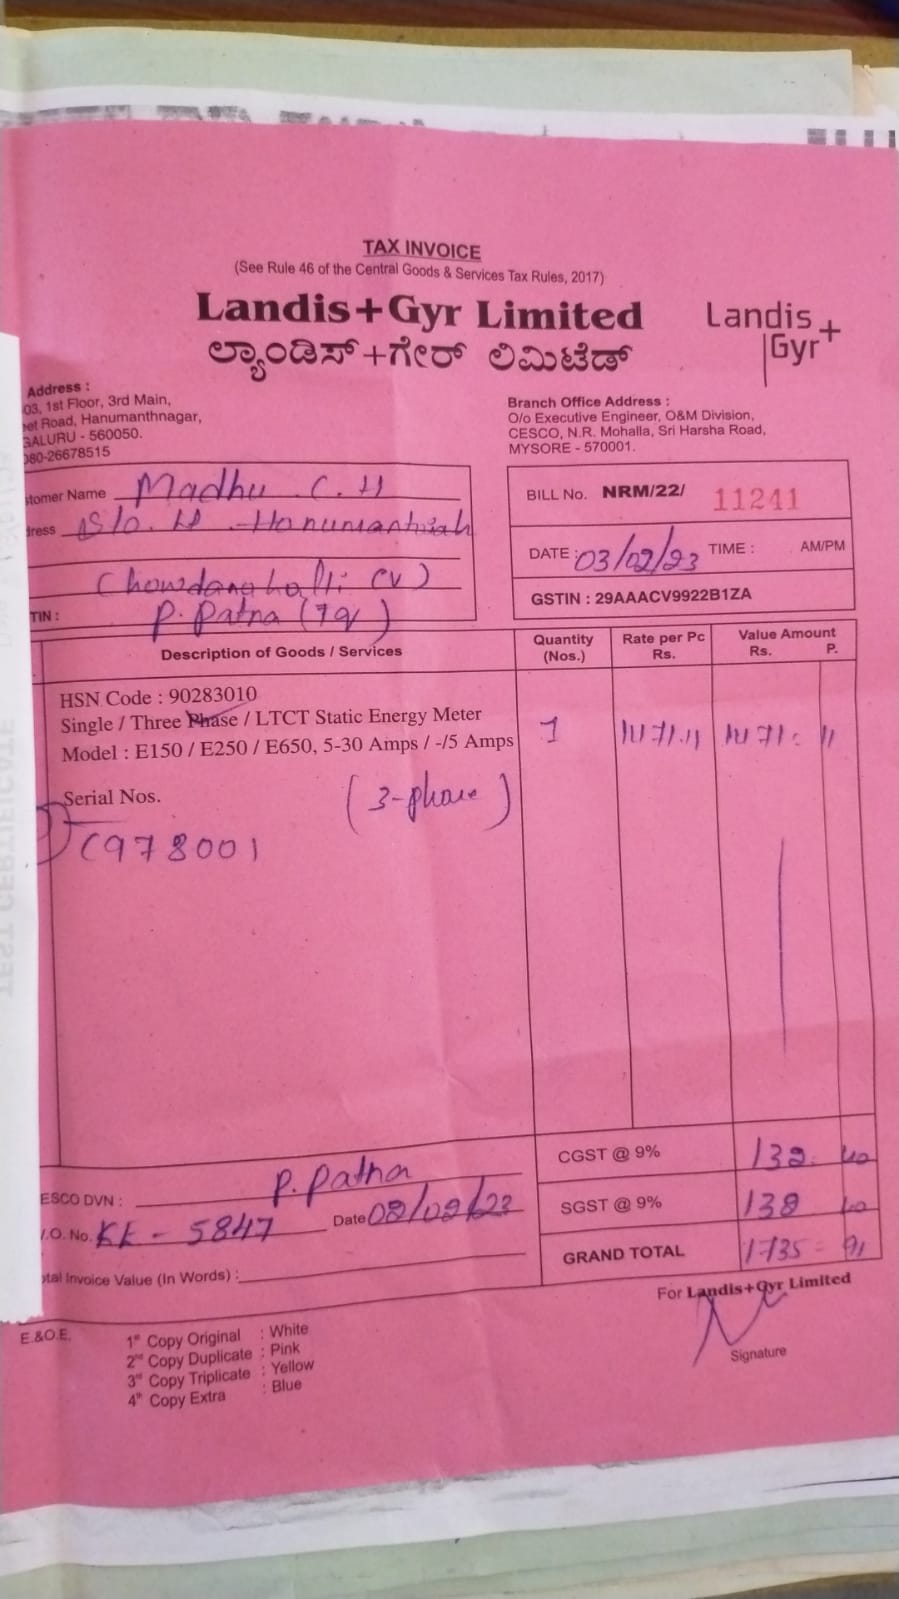 TAX INVOICE
(See Rule 46 of the Central Goods & Services Tax Rules, 2017)
Landis+Gyr Limited
ಲ್ಯಾಂಡಿಸ್+ಗೇರ್ ಲಿಮಿಟೆಡ್
Landis+
Gyr
Address :
03, 1st Floor, 3rd Main,
Road, Hanumanthnagar,
GALURU - 560050.
080-26678515
Branch Office Address :
O/o Executive Engineer, O&M Division,
CESCO, N.R. Mohalla, Sri Harsha Road,
MYSORE - 570001.
tomer Name Madhu C.H
ress S/o. H. Hanumanthaiah
Chowdanahalli (V)
TIN : P. Patna (Tq)
BILL No. NRM/22/ 11241
DATE : 03/02/23 TIME : AM/PM
GSTIN : 29AAACV9922B1ZA
Description of Goods / Services
Quantity (Nos.)
Rate per Pc Rs.
Value Amount Rs. P.
HSN Code : 90283010
Single / Three Phase / LTCT Static Energy Meter
Model : E150 / E250 / E650, 5-30 Amps / -/5 Amps
1 1471.11 1471 = 11
Serial Nos.
(3-phase)
C978001
CGST @ 9% 132 40
SGST @ 9% 132 40
GRAND TOTAL 1735 = 91
ESCO DVN : P. Patna
.O. No. KK - 5847 Date 02/02/23
tal Invoice Value (In Words) :
For Landis+Gyr Limited
Signature
E.&O.E.
1st Copy Original : White
2nd Copy Duplicate : Pink
3rd Copy Triplicate : Yellow
4th Copy Extra : Blue